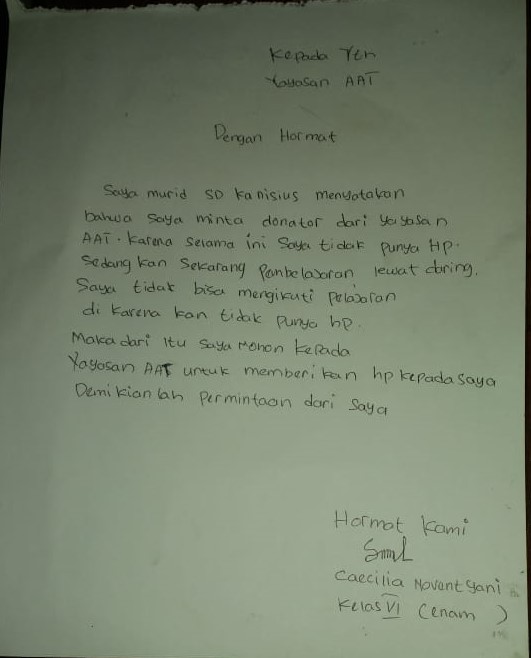 Kepada Yth
Yayasan AAT
Dengan Hormat
Saya murid SD Kanisius menyatakan
bahwa saya minta donator dari yayasan
AAT. Karena selama ini saya tidak punya HP.
Sedang kan Sekarang Panbelajaran lewat daring.
Saya tidak bisa mengikuti pelajaran
di karena kan tidak punya hp.
Maka dari itu saya mohon kepada
Yayasan AAT untuk memberi kan hp kepada saya
Demi kian lah permintaan dari saya
Hormat Kami
Caecilia Novent yani
Kelas VI (enam )